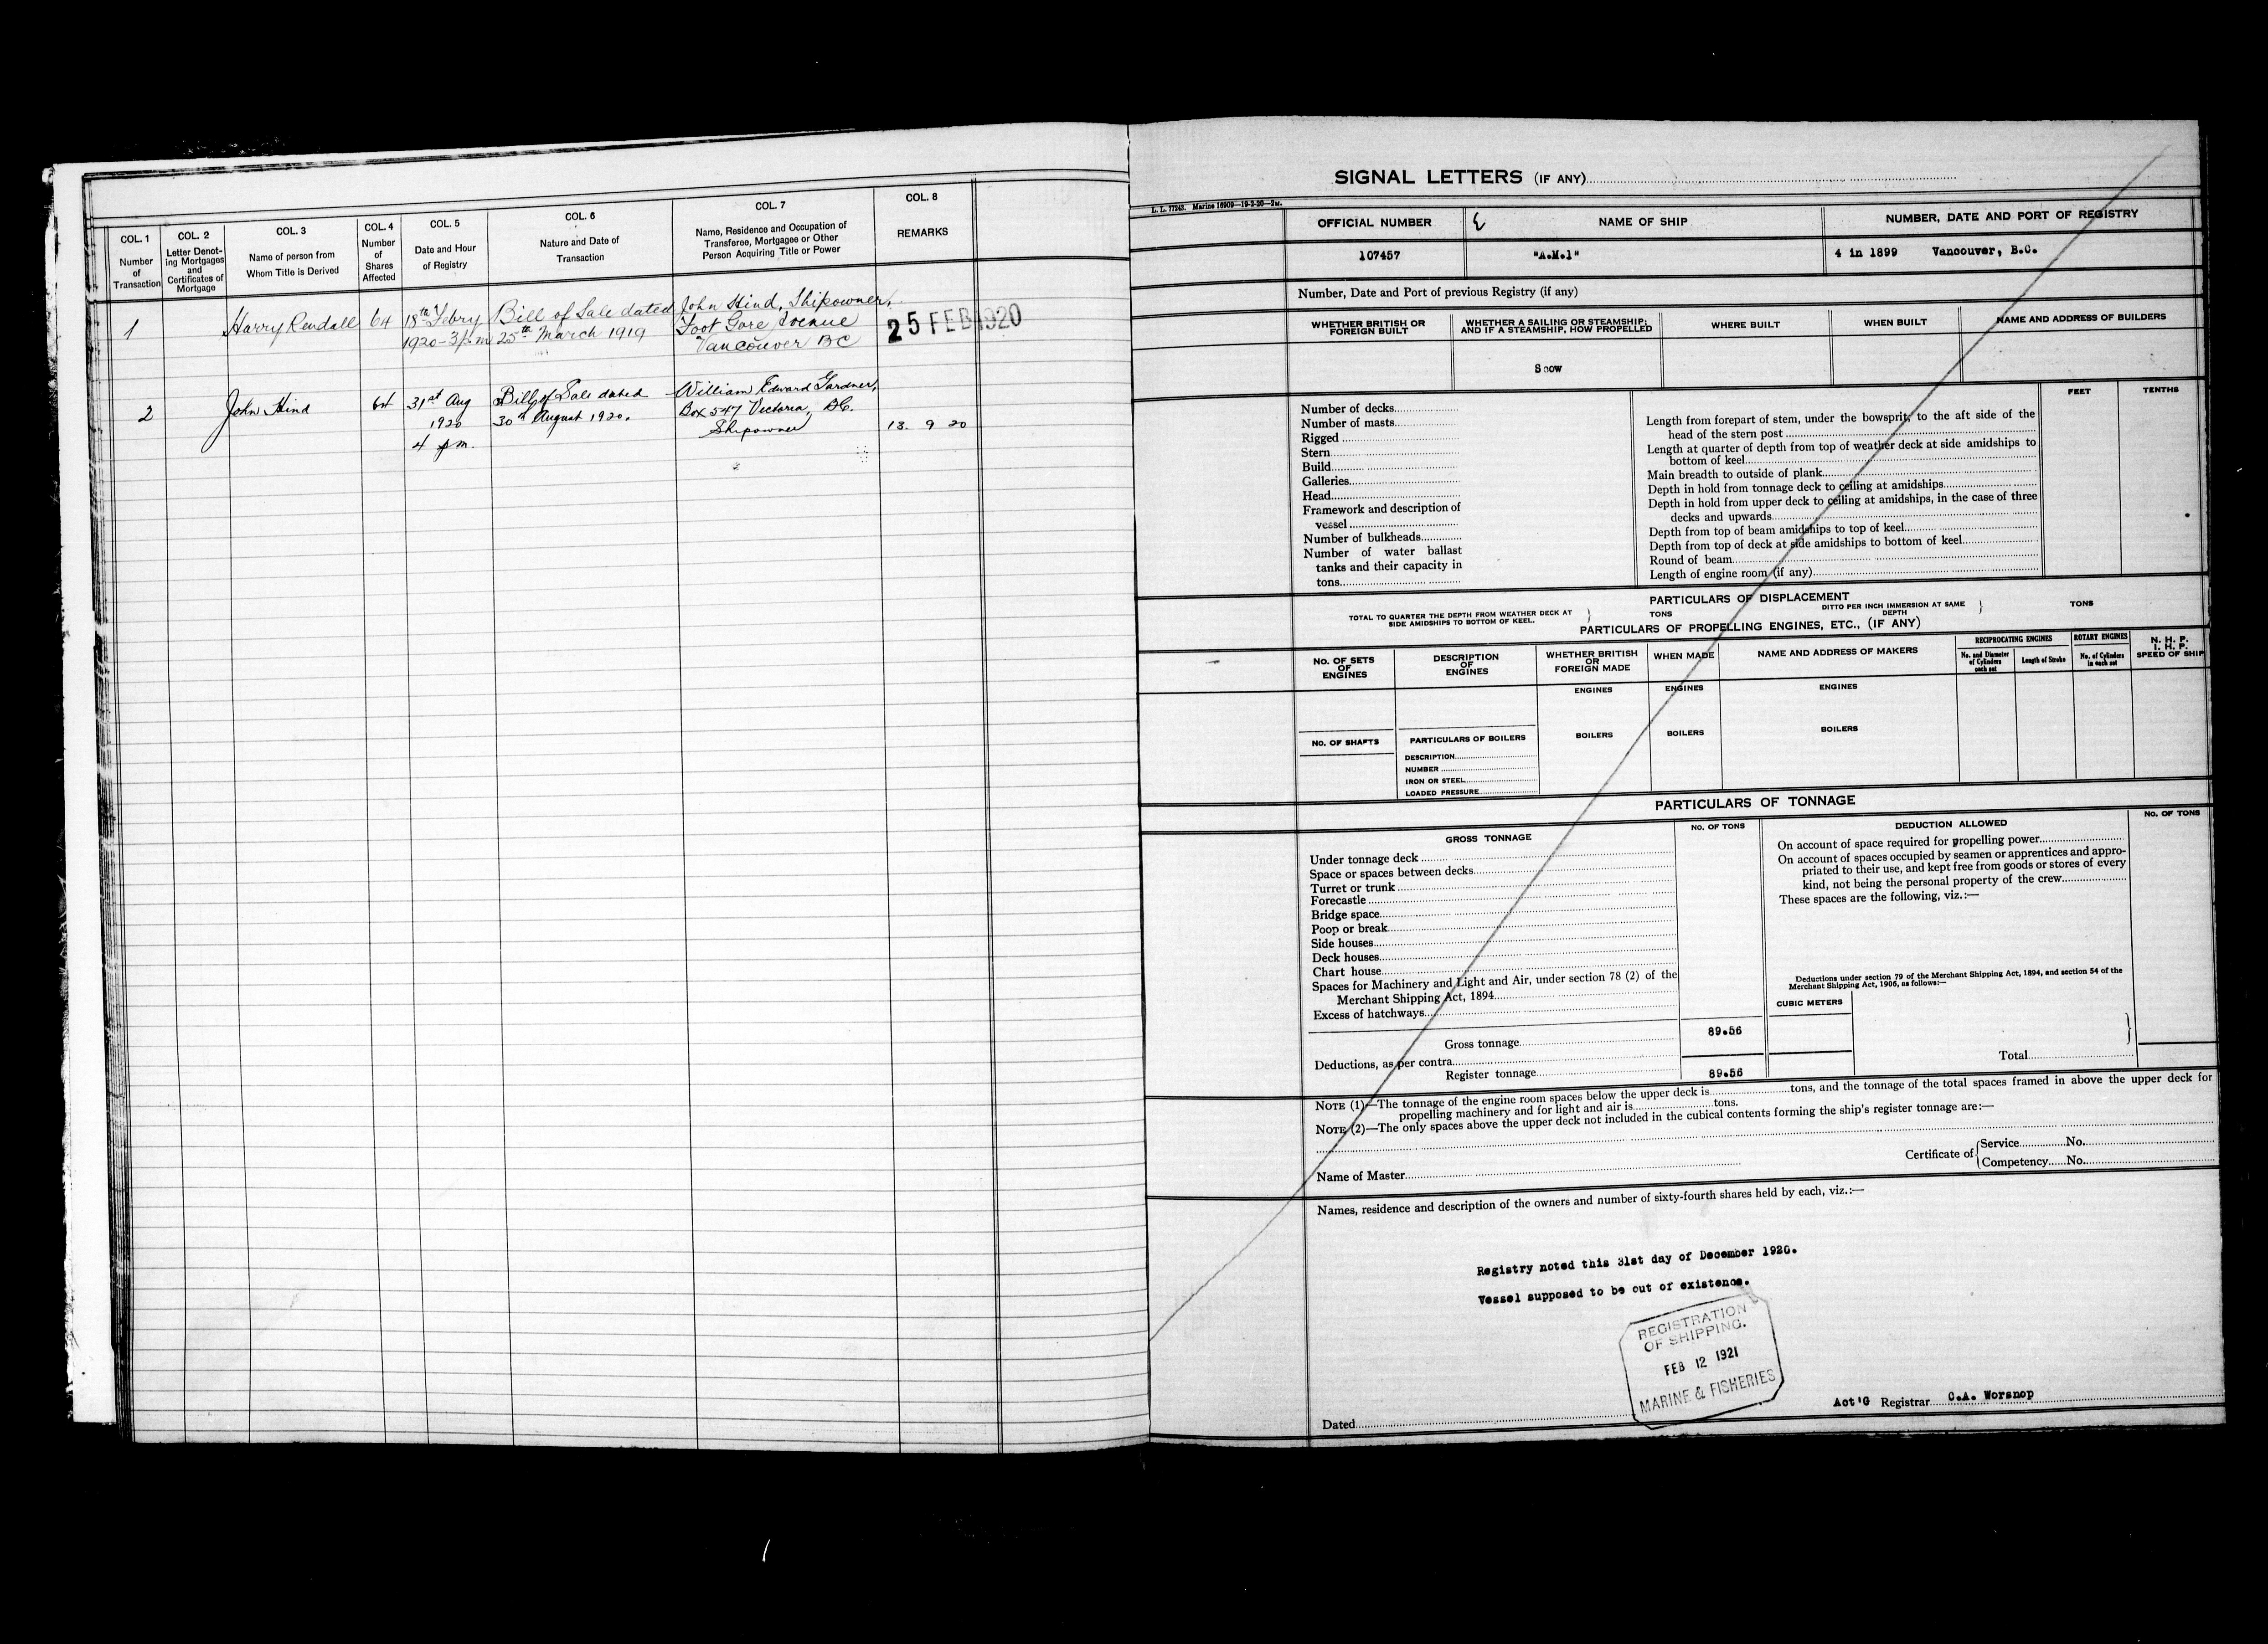 COL. 1
Number
of
Transaction
COL. 2
Letter Denot-
ing Mortgages
and
Certificates of
Mortgage
COL. 3
Name of person from
Whom Title is Derived
COL. 4
Number
of
Shares
Affected
COL. 5
Date and Hour
of Registry
COL. 6
Nature and Date of
Transaction
COL. 7
Name, Residence and Occupation of
Transferee, Mortgagee or Other
Person Acquiring Title or Power
COL. 8
REMARKS
1
Harry Rendall
64
18th Febry
1920-3 p.m
Bill of Sale dated
25th March 1919
John Hind, Shipowner,
Foot Gore Avenue
Vancouver BC
25 FEB 1920
2
John Hind
64
31st Aug
1920
4 pm.
Bill of Sale dated
30th August 1920.
William Edward Gardner,
Box 547 Victoria, BC.
Shipowner
13. 9 20
SIGNAL LETTERS (IF ANY)
L. L. 77243. Marine 16909—19-2-20—2M.
OFFICIAL NUMBER
NAME OF SHIP
NUMBER, DATE AND PORT OF REGISTRY
107457
"A.M.1"
4 in 1899 Vancouver, B.C.
Number, Date and Port of previous Registry (if any)
WHETHER BRITISH OR
FOREIGN BUILT
WHETHER A SAILING OR STEAMSHIP;
AND IF A STEAMSHIP, HOW PROPELLED
WHERE BUILT
WHEN BUILT
NAME AND ADDRESS OF BUILDERS
Scow
FEET
TENTHS
Number of decks
Number of masts
Rigged
Stern
Build
Galleries
Head
Framework and description of
vessel
Number of bulkheads
Number of water ballast
tanks and their capacity in
tons
Length from forepart of stem, under the bowsprit, to the aft side of the
head of the stern post
Length at quarter of depth from top of weather deck at side amidships to
bottom of keel
Main breadth to outside of plank
Depth in hold from tonnage deck to ceiling at amidships
Depth in hold from upper deck to ceiling at amidships, in the case of three
decks and upwards
Depth from top of beam amidships to top of keel
Depth from top of deck at side amidships to bottom of keel
Round of beam
Length of engine room (if any)
PARTICULARS OF DISPLACEMENT
TOTAL TO QUARTER THE DEPTH FROM WEATHER DECK AT
SIDE AMIDSHIPS TO BOTTOM OF KEEL.
TONS
DITTO PER INCH IMMERSION AT SAME
DEPTH
TONS
PARTICULARS OF PROPELLING ENGINES, ETC., (IF ANY)
NO. OF SETS
OF
ENGINES
DESCRIPTION
OF
ENGINES
WHETHER BRITISH
OR
FOREIGN MADE
WHEN MADE
NAME AND ADDRESS OF MAKERS
RECIPROCATING ENGINES
No. and Diameter
of Cylinders
each set
Length of Stroke
ROTARY ENGINES
No. of Cylinders
in each set
N. H. P.
I. H. P.
SPEED OF SHIP
ENGINES
ENGINES
ENGINES
NO. OF SHAFTS
PARTICULARS OF BOILERS
BOILERS
BOILERS
BOILERS
DESCRIPTION
NUMBER
IRON OR STEEL
LOADED PRESSURE
PARTICULARS OF TONNAGE
GROSS TONNAGE
NO. OF TONS
DEDUCTION ALLOWED
NO. OF TONS
Under tonnage deck
Space or spaces between decks
Turret or trunk
Forecastle
Bridge space
Poop or break
Side houses
Deck houses
Chart house
Spaces for Machinery and Light and Air, under section 78 (2) of the
Merchant Shipping Act, 1894
Excess of hatchways
Gross tonnage
89.56
Deductions, as per contra
Register tonnage
89.56
On account of space required for propelling power
On account of spaces occupied by seamen or apprentices and appro-
priated to their use, and kept free from goods or stores of every
kind, not being the personal property of the crew
These spaces are the following, viz.:—
Deductions under section 79 of the Merchant Shipping Act, 1894, and section 54 of the
Merchant Shipping Act, 1906, as follows:—
CUBIC METERS
Total
NOTE (1)—The tonnage of the engine room spaces below the upper deck is tons, and the tonnage of the total spaces framed in above the upper deck for
propelling machinery and for light and air is tons.
NOTE (2)—The only spaces above the upper deck not included in the cubical contents forming the ship's register tonnage are:—
Name of Master
Certificate of
Service No.
Competency No.
Names, residence and description of the owners and number of sixty-fourth shares held by each, viz.:—
Registry noted this 31st day of December 1920.
Vessel supposed to be out of existence.
REGISTRATION
OF SHIPPING.
FEB 12 1921
MARINE & FISHERIES
Dated
Act'G Registrar C.A. Worsnop